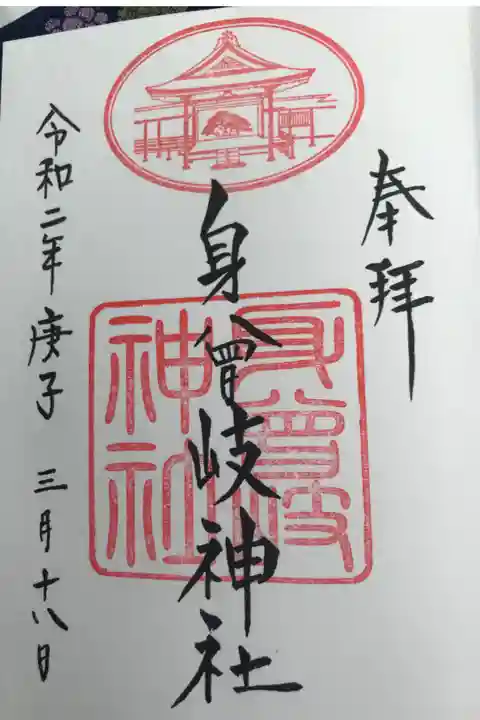 奉拝
身曾岐神社
身曾岐神社
令和二年庚子 三月十八日